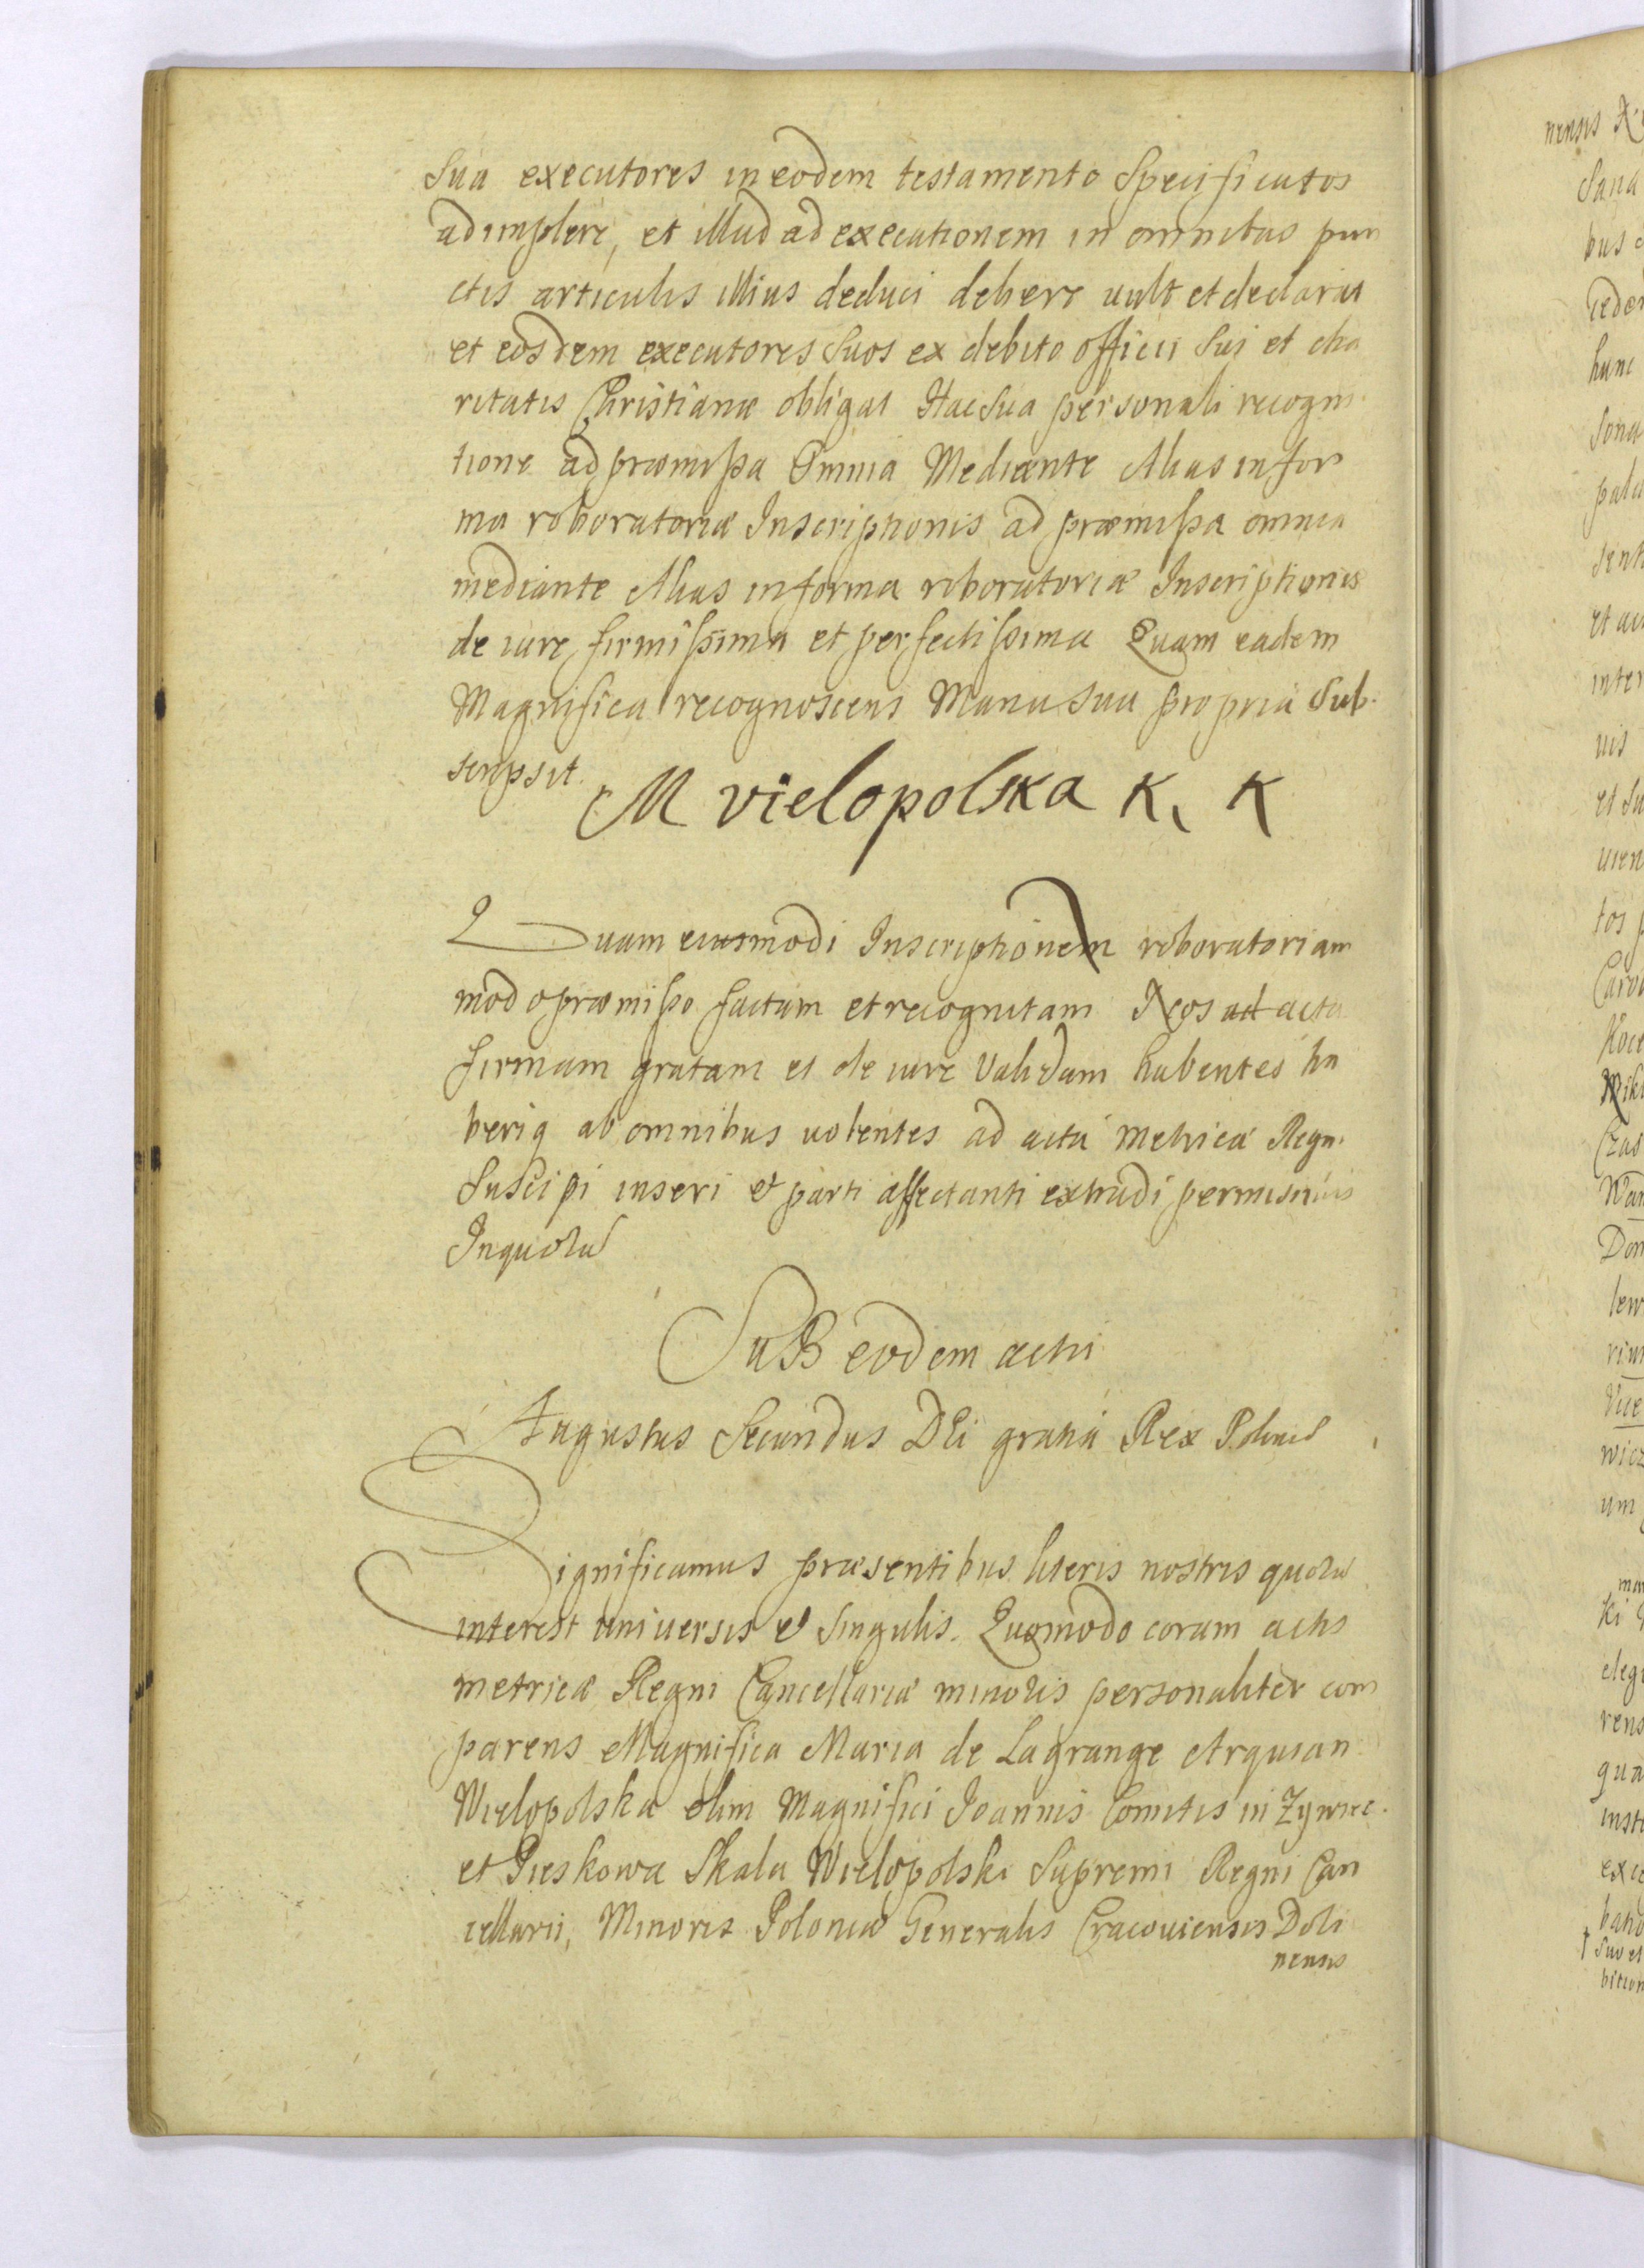 sua executores in eodem testamento specificatos
adimplere, et illud ad executionem in omnibus pun
ctis articulis illius deduci debere uult et declarat
et eosdem executores suos ex debito officii sui et cha
ritatis Christianæ obligat Hac sua personali recogni
tione ad præmissa Omnia Mediante Alias in for
ma roboratoriæ Inscriptionis ad præmissa omnia
mediante Alias in forma roboratoriæ Inscriptionis
de iure firmissima et perfectissima Quam eadem
Magnifica recognoscens Manu sua propria sub
scripsit.
M vielopolska K, K
Quam eiusmodi Inscriptionem roboratoriam
modo præmisso factam et recognitam Nos ad acta
firmam gratam et de iure validam habentes ha
beriq ab omnibus uolentes ad acta metricæ Regni
suscipi inseri et parti affectanti extradi permisimus
In quoru
SuB eodem actu
Augustus Secundus DEi gratia Rex Poloniæ
Significamus præsentibus literis nostris quoru
interest uniuersis et singulis. Quomodo coram actis
metricæ Regni Cancellariæ minoris personaliter com
parens Magnifica Maria de Lagrange Arquian
Wielopolska olim Magnifici Joannis Comitis in Zywiec
et Pieskowa Skala Wielopolski Supremi Regni Can
cellarii, Minoris Poloniæ Generalis Cracouiensis Doli
nensis